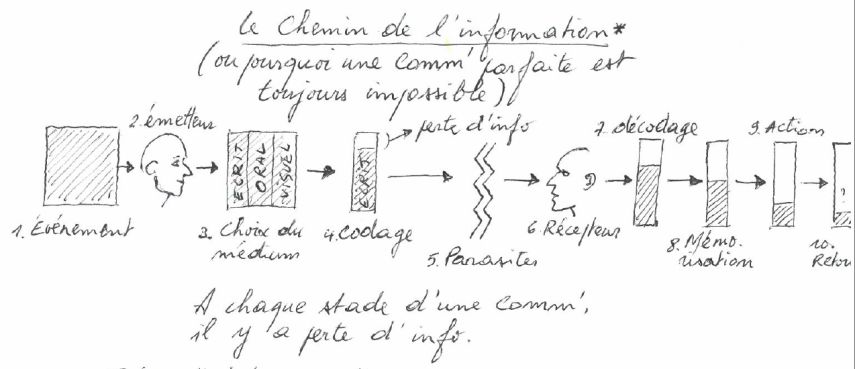 Le Chemin de l'information*
(ou pourquoi une Comm' parfaite est
toujours impossible)
perte d'info
2. émetteur
7. décodage
9. Action
ECRIT
ORAL
VISUEL
ECRIT
1. Événement
3. Choix du
médium
4. Codage
5. Parasites
6. Récepteur
8. Mémo-
risation
?
10.
Retou
A chaque stade d'une Comm',
il y a perte d'info.